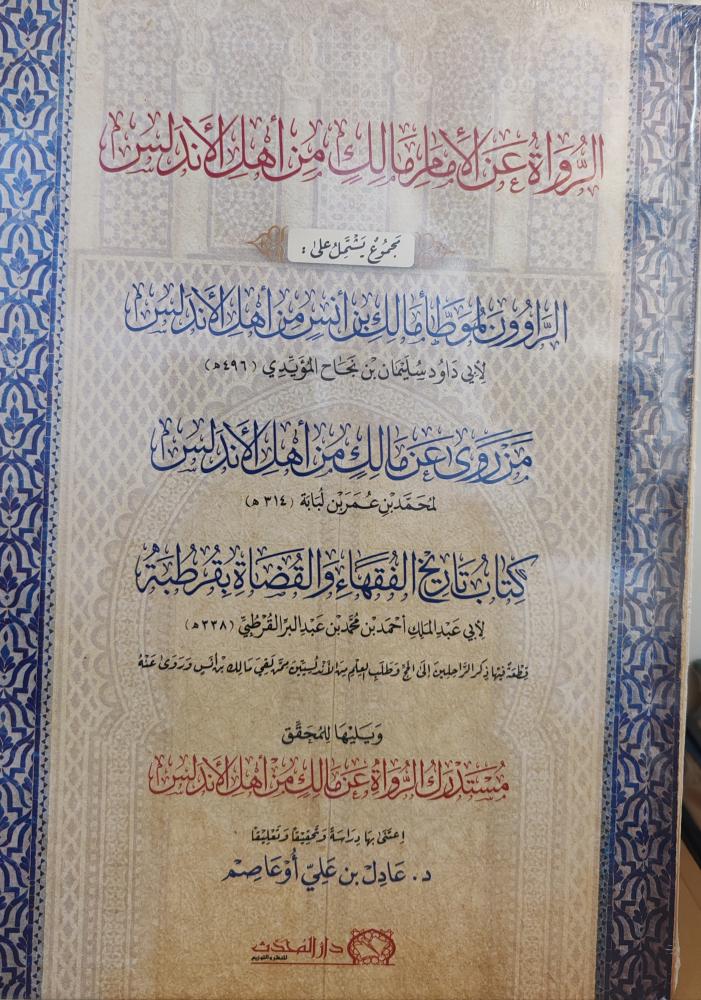 الرُّوَاةُ عَنِ الإِمَامِ مَالِكٍ مِنْ أَهْلِ الأَنْدَلُسِ
مَجْمُوعٌ يَشْتَمِلُ عَلَىٰ :
الرَّاوُونَ لِمُوَطَّأِ مَالِكِ بْنِ أَنَسٍ مِنْ أَهْلِ الأَنْدَلُسِ
لِأَبِي دَاوُد سُلَيْمَان بْن نَجَاح المُؤَيَّدِي (٤٩٦هـ)
مَنْ رَوَىٰ عَنْ مَالِكٍ مِنْ أَهْلِ الأَنْدَلُسِ
لمُحَمَّد بْنِ عُمَرَ بْنِ لُبَابَة (٣١٤هـ)
كِتَابُ تَارِيخِ الفُقَهَاءِ وَالقُضَاةِ بِقُرْطُبَةَ
لِأَبِي عَبْدِ المَلِكِ أَحْمَد بْن مُحَمَّد بْن عَبْدِ البَرِّ القُرْطُبِيِّ (٣٣٨هـ)
قِطْعَةٌ فِيهَا ذِكْرُ الرَّاحِلِينَ إِلَى الحَجِّ وَطَلَبِ العِلْمِ مِنَ الأَنْدَلُسِيِّينَ مِمَّنْ لَقِيَ مَالِك بْن أَنَسٍ وَرَوَىٰ عَنْهُ
وَيَلِيْهَا لِلْمُحَقِّق
مُسْتَدْرَكُ الرُّوَاةِ عَنْ مَالِكٍ مِنْ أَهْلِ الأَنْدَلُسِ
اعْتَنَىٰ بِهَا دِرَاسَةً وَتَحْقِيْقًا وَتَعْلِيْقًا
د. عَادِل بن عَلِيّ أُوعَاصِم
دار المحدث
للنشر والتوزيع